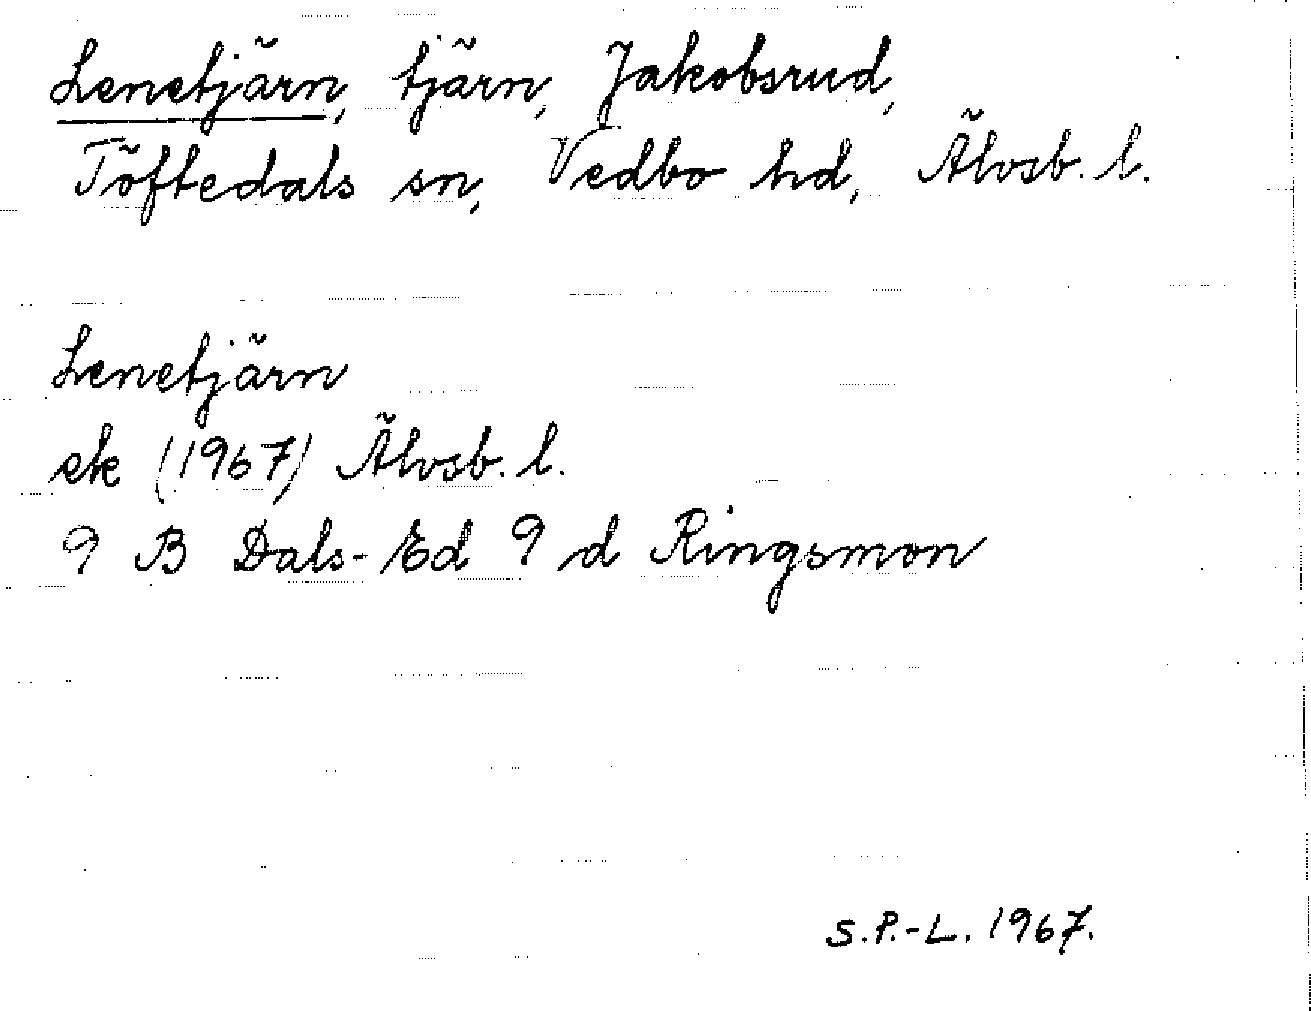 Lenetjärn, tjärn, Jakobsrud,
Töftedals sn, Vedbo hd, Älvsb. l.
Lenetjärn
ek (1967) Älvsb. l.
9 B Dals-Ed 9 d Ringsmon
S.P.-L. 1967.